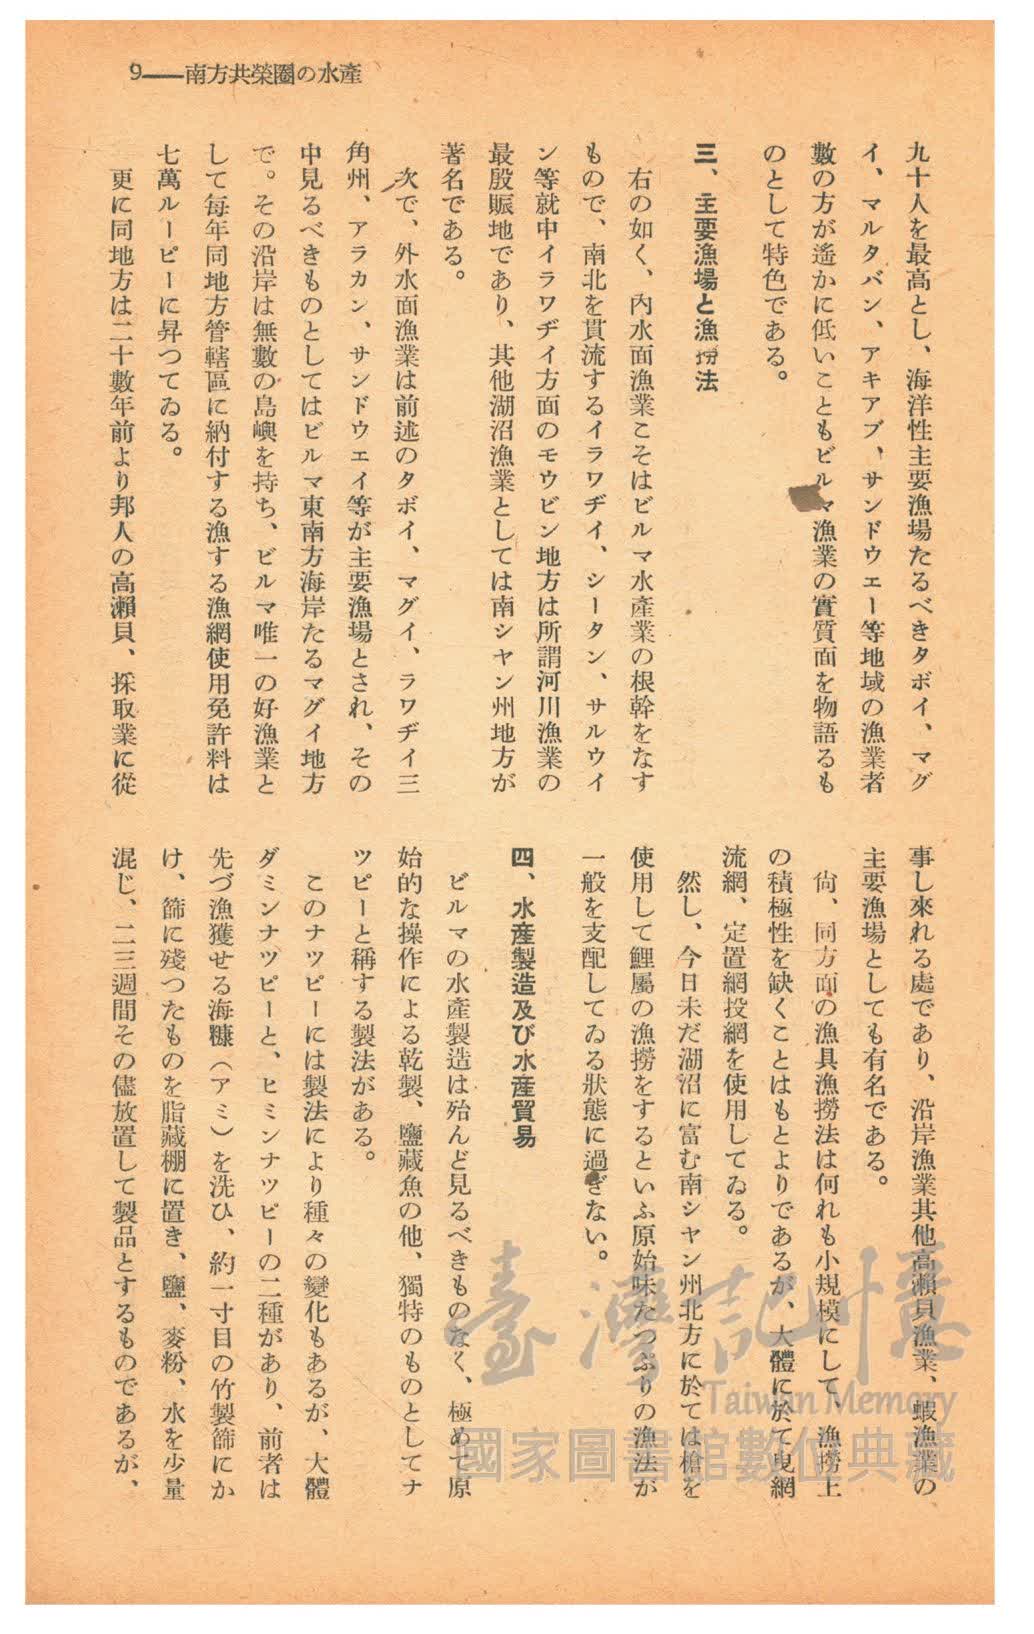 9——南方共榮圈の水產
九十人を最高とし、海洋性主要漁場たるべきタボイ、マグ
イ、マルタバン、アキアブ、サンドウエー等地域の漁業者
數の方が遙かに低いこともビルマ漁業の實質面を物語るも
のとして特色である。
三、主要漁場と漁撈法
右の如く、內水面漁業こそはビルマ水產業の根幹をなす
もので、南北を貫流するイラワヂイ、シータン、サルウイ
ン等就中イラワヂイ方面のモウビン地方は所謂河川漁業の
最殷賑地であり、其他湖沼漁業としては南シヤン州地方が
著名である。
次で、外水面漁業は前述のタボイ、マグイ、ラワヂイ三
角州、アラカン、サンドウエイ等が主要漁場とされ、その
中見るべきものとしてはビルマ東南方海岸たるマグイ地方
で。その沿岸は無數の島嶼を持ち、ビルマ唯一の好漁業と
して每年同地方管轄區に納付する漁する漁網使用免許料は
七萬ルーピーに昇つてゐる。
更に同地方は二十數年前より邦人の高瀨貝、採取業に從
事し來れる處であり、沿岸漁業其他高瀨貝漁業、蝦漁業の
主要漁場としても有名である。
尙、同方面の漁具漁撈法は何れも小規模にして、漁撈上
の積極性を缺くことはもとよりであるが、大體に於て曳網
流網、定置網投網を使用してゐる。
然し、今日未だ湖沼に富む南シヤン州北方に於ては槍を
使用して鯉屬の漁撈をするといふ原始味たつぷりの漁法が
一般を支配してゐる狀態に過ぎない。
四、水産製造及び水産貿易
ビルマの水產製造は殆んど見るべきものなく、極めて原
始的な操作による乾製、鹽藏魚の他、獨特のものとしてナ
ツピーと稱する製法がある。
このナツピーには製法により種々の變化もあるが、大體
ダミンナツピーと、ヒミンナツピーの二種があり、前者は
先づ漁獲せる海糠（アミ）を洗ひ、約一寸目の竹製篩にか
け、篩に殘つたものを脂藏棚に置き、鹽、麥粉、水を少量
混じ、二三週間その儘放置して製品とするものであるが、
臺灣記憶
Taiwan Memory
國家圖書館數位典藏